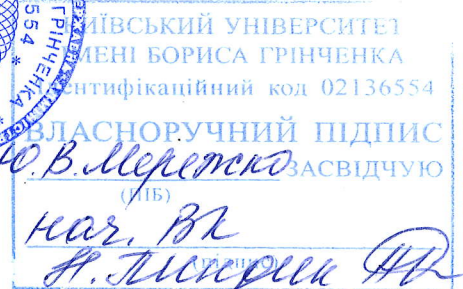 ГРІНЧЕНКА
554 *
ИЇВСЬКИЙ УНІВЕРСИТЕТ
МЕНІ БОРИСА ГРІНЧЕНКА
ентифікаційний код 02136554
ВЛАСНОРУЧНИЙ ПІДПИС
Ю.В. Мережко ЗАСВІДЧУЮ
(ПІБ)
нач. ВК